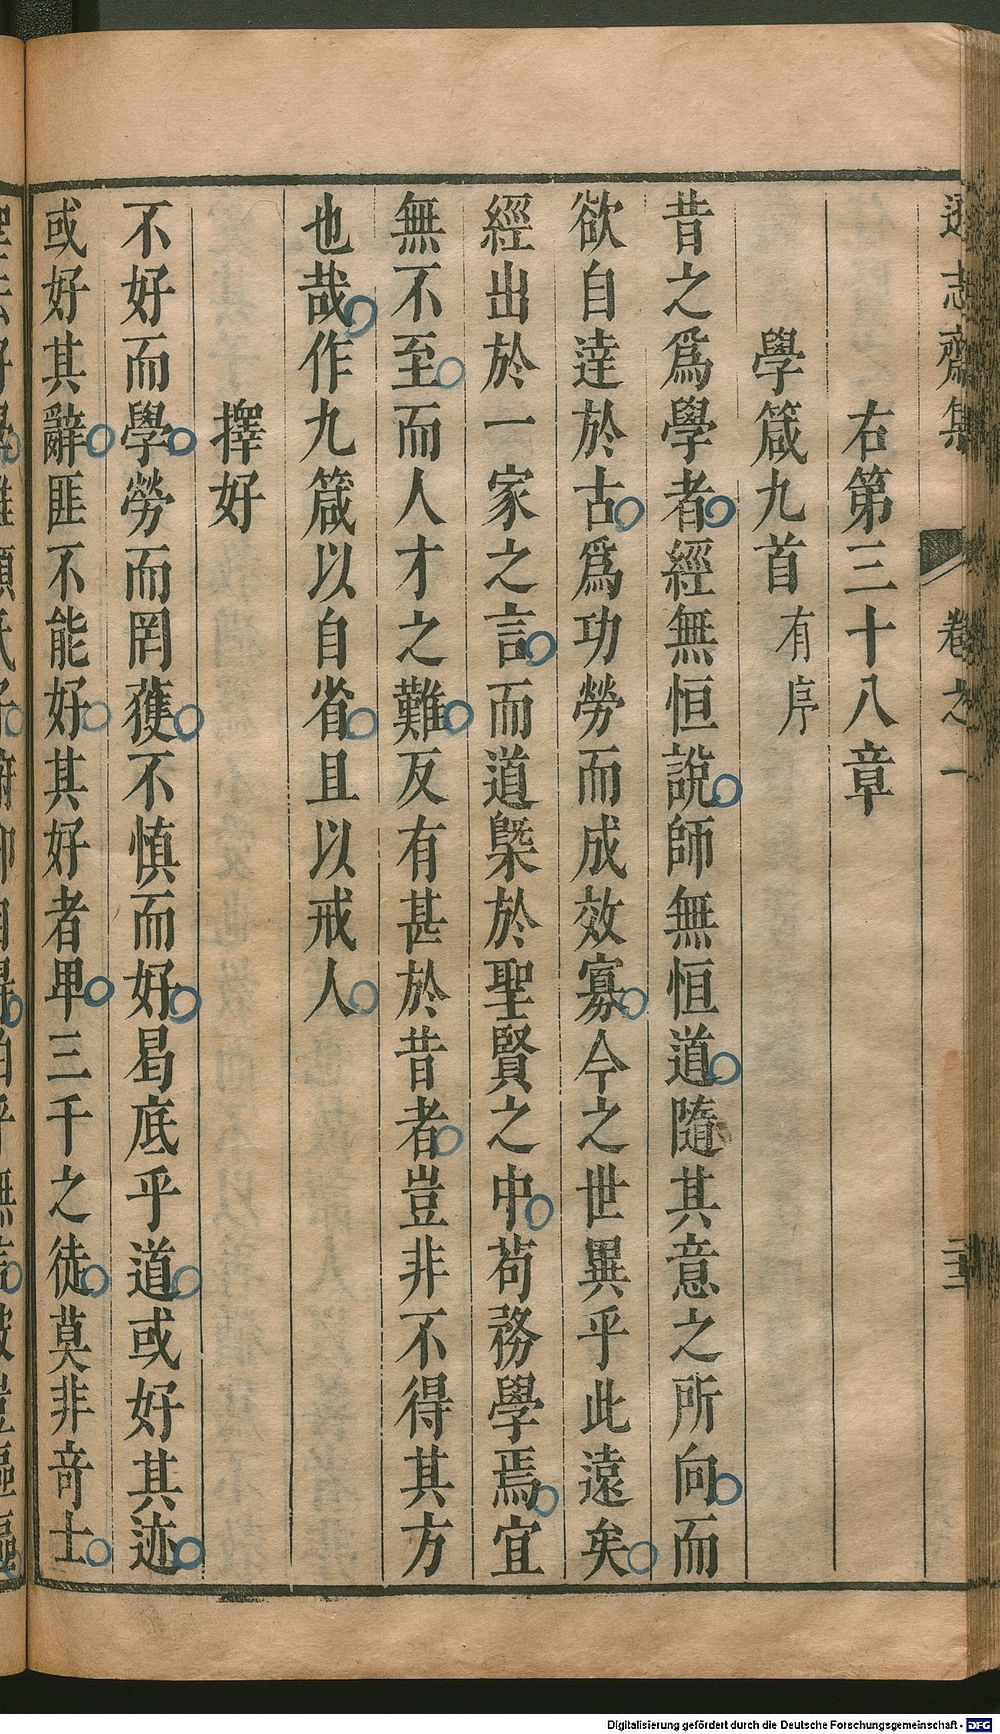 遜志齋集 卷之一
右第三十八章
學箴九首 有序
昔之爲學者經無恒說師無恒道隨其意之所向而
欲自逹於古爲功勞而成效寡今之世異乎此遠矣
經出於一家之言而道槩於聖賢之中苟務學焉宜
無不至而人才之難反有甚於昔者豈非不得其方
也哉作九箴以自省且以戒人
擇好
不好而學勞而罔獲不慎而好曷底乎道或好其迹
或好其辭匪不能好其好者卑三千之徒莫非竒士
Digitalisierung gefördert durch die Deutsche Forschungsgemeinschaft - DFG